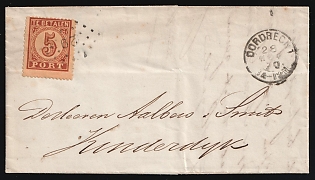 TE BETALEN
5
PORT
DORDRECHT
De Heeren Aalbers & Smit
Kinderdyk